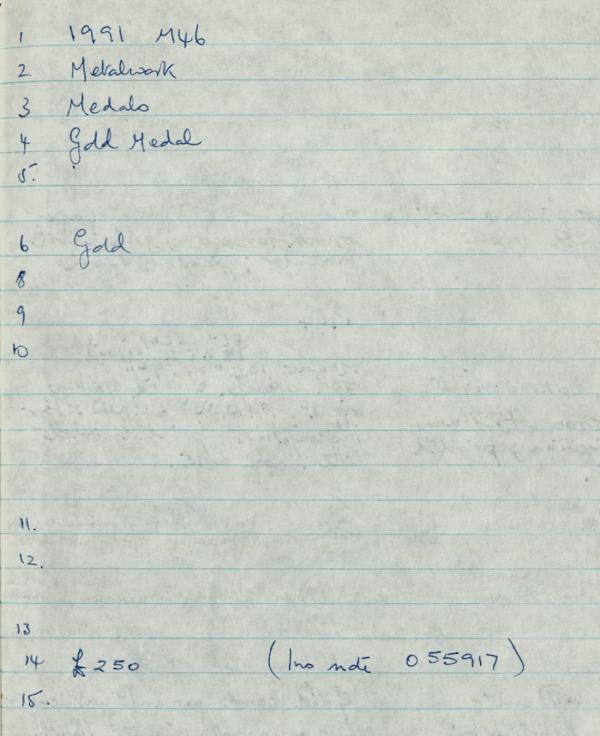 1 1991 M46
2 Metalwork
3 Medals
4 Gold Medal
5.
6 Gold
8
9
10
11.
12.
13
14 £250 (Ins note 055917)
15.